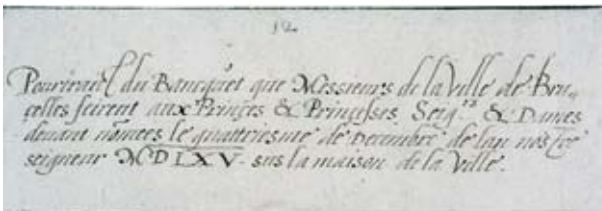 12.
Pourtraict du Bancquet que Messieurs de la Ville de Bru„
celles feirent aux Princes & Princesses, Seigrs & Dames
deuant nōmees le quattriesme de Decembre de lan nostre
seigneur MDLXV. sus la maison de la Ville.